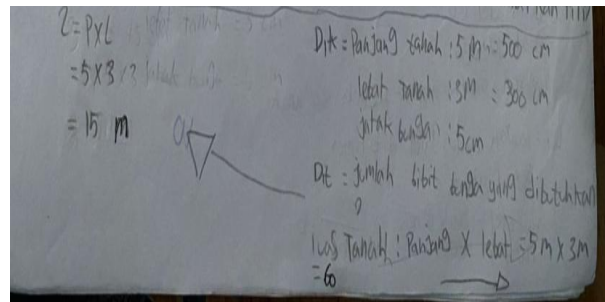 L = P x L
= 5 x 3
= 15 m
Dik = Panjang tanah : 5 m = 500 cm
lebar Tanah : 3M = 300 cm
jarak bunga : 5cm
Dit = jumlah bibit bunga yang dibutuhkan
?
luas Tanah : Panjang x lebar = 5 m x 3m
= 60